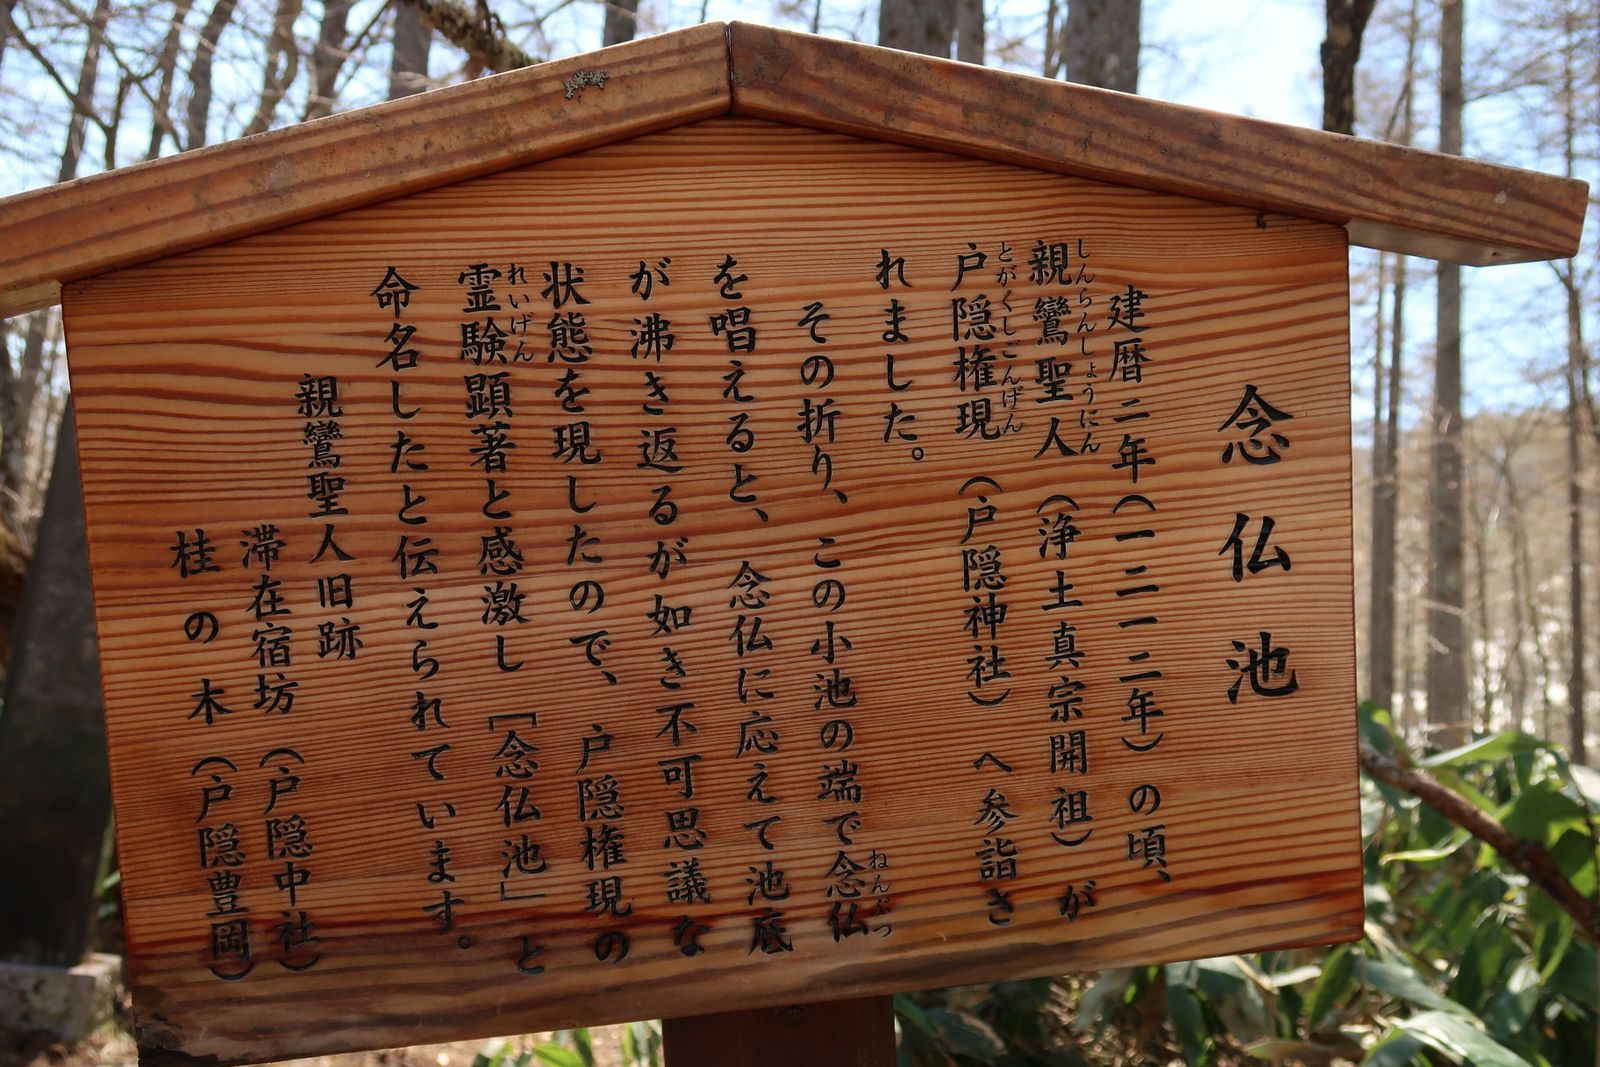 念仏池
建暦二年（一二一二年）の頃、
親鸞聖人（浄土真宗開祖）が
しんらんしょうにん
戸隠権現（戸隠神社）へ参詣さ
とがくしごんげん
れました。
その折り、この小池の端で念仏
ねんぶつ
を唱えると、念仏に応えて池底
が沸き返るが如き不可思議な
状態を現したので、戸隠権現の
霊験顕著と感激し［念仏池」と
れいげん
命名したと伝えられています。
親鸞聖人旧跡
滞在宿坊（戸隠中社）
桂の木（戸隠豊岡）